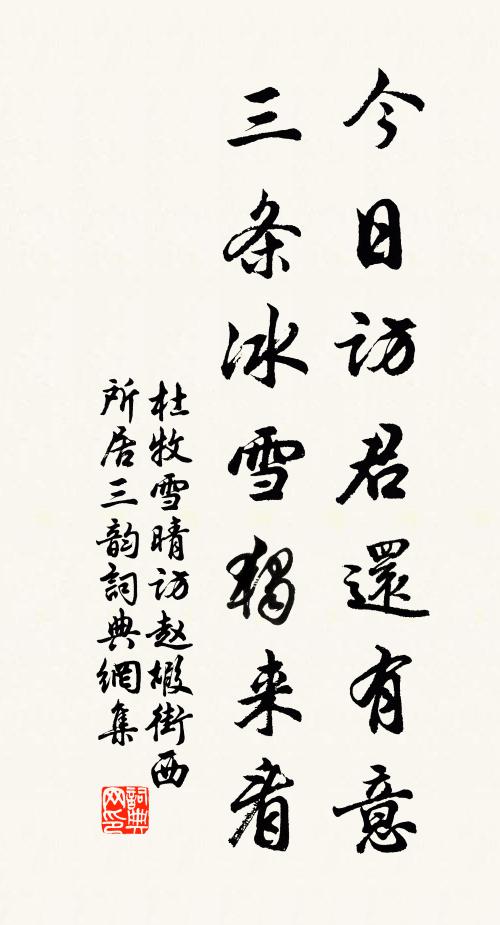 今日訪君還有意
三条冰雪獨来看
杜牧雪晴访赵嘏街西
所居三韵詞典網集
詞典
网印